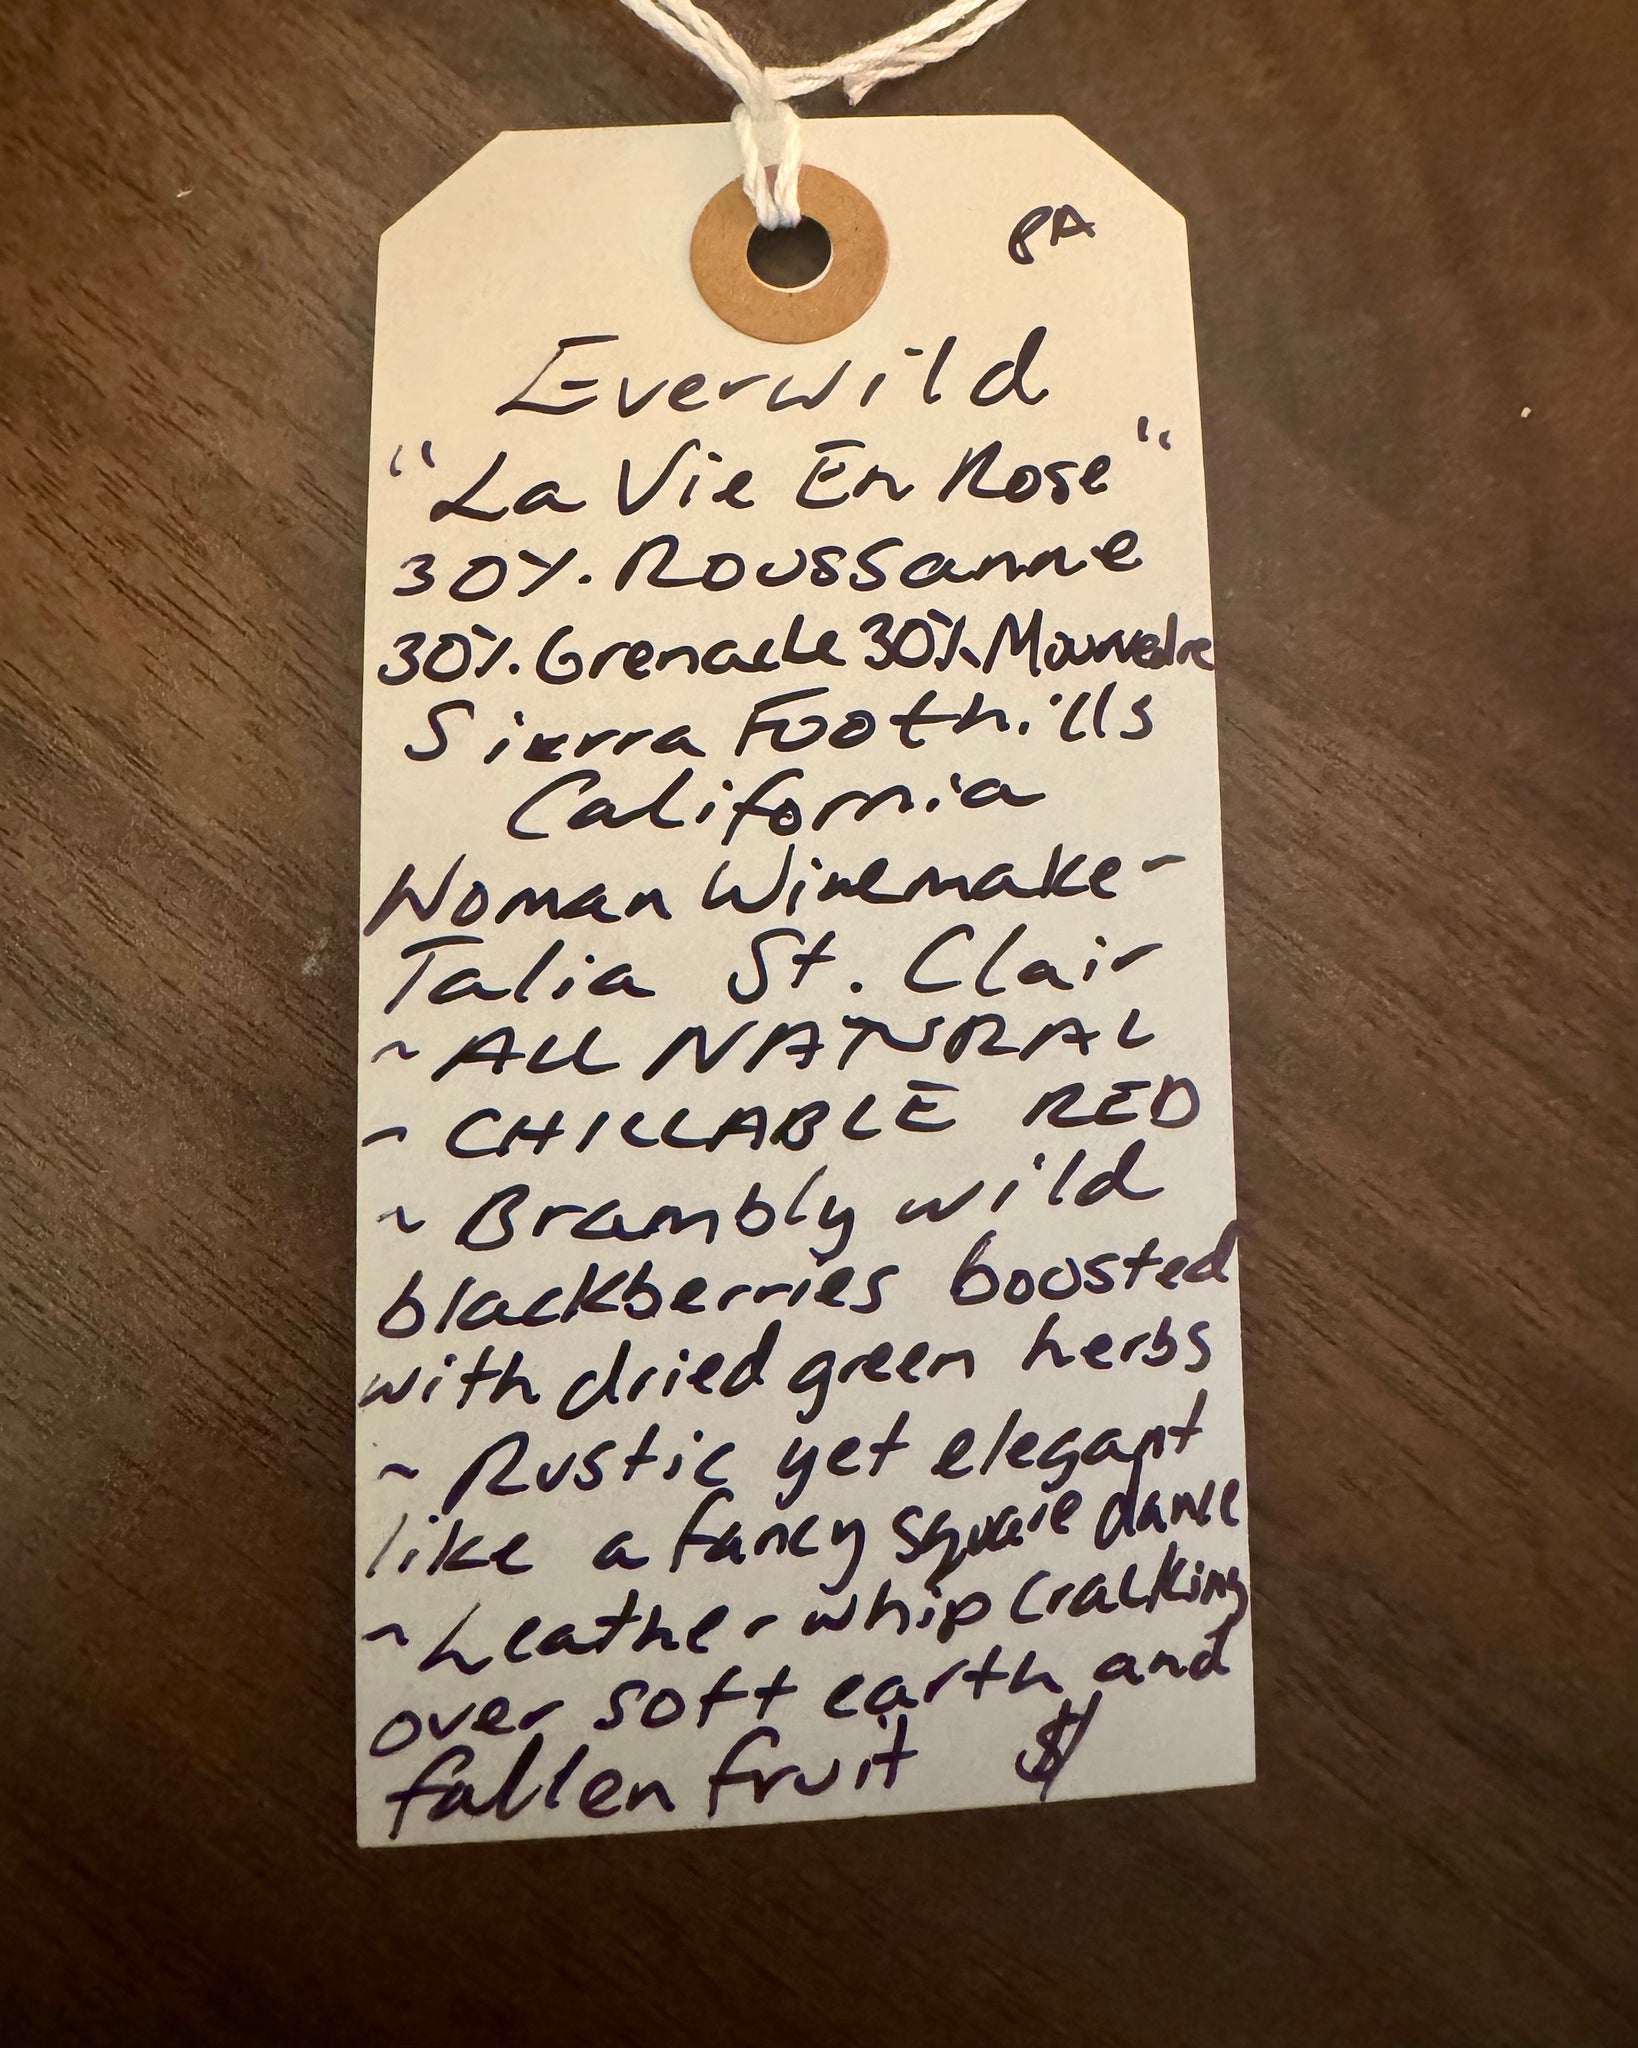 8A
Everwild
"La Vie En Rose"
30% Roussanne
30% Grenache 30% Mourvedre
Sierra Foothills
California
Woman Winemaker
Talia St. Clair
~ ALL NATURAL
~ CHILLABLE RED
~ Brambly wild
blackberries boosted
with dried green herbs
~ Rustic yet elegant
like a fancy square dance
~ Leather whip cracking
over soft earth and
fallen fruit $